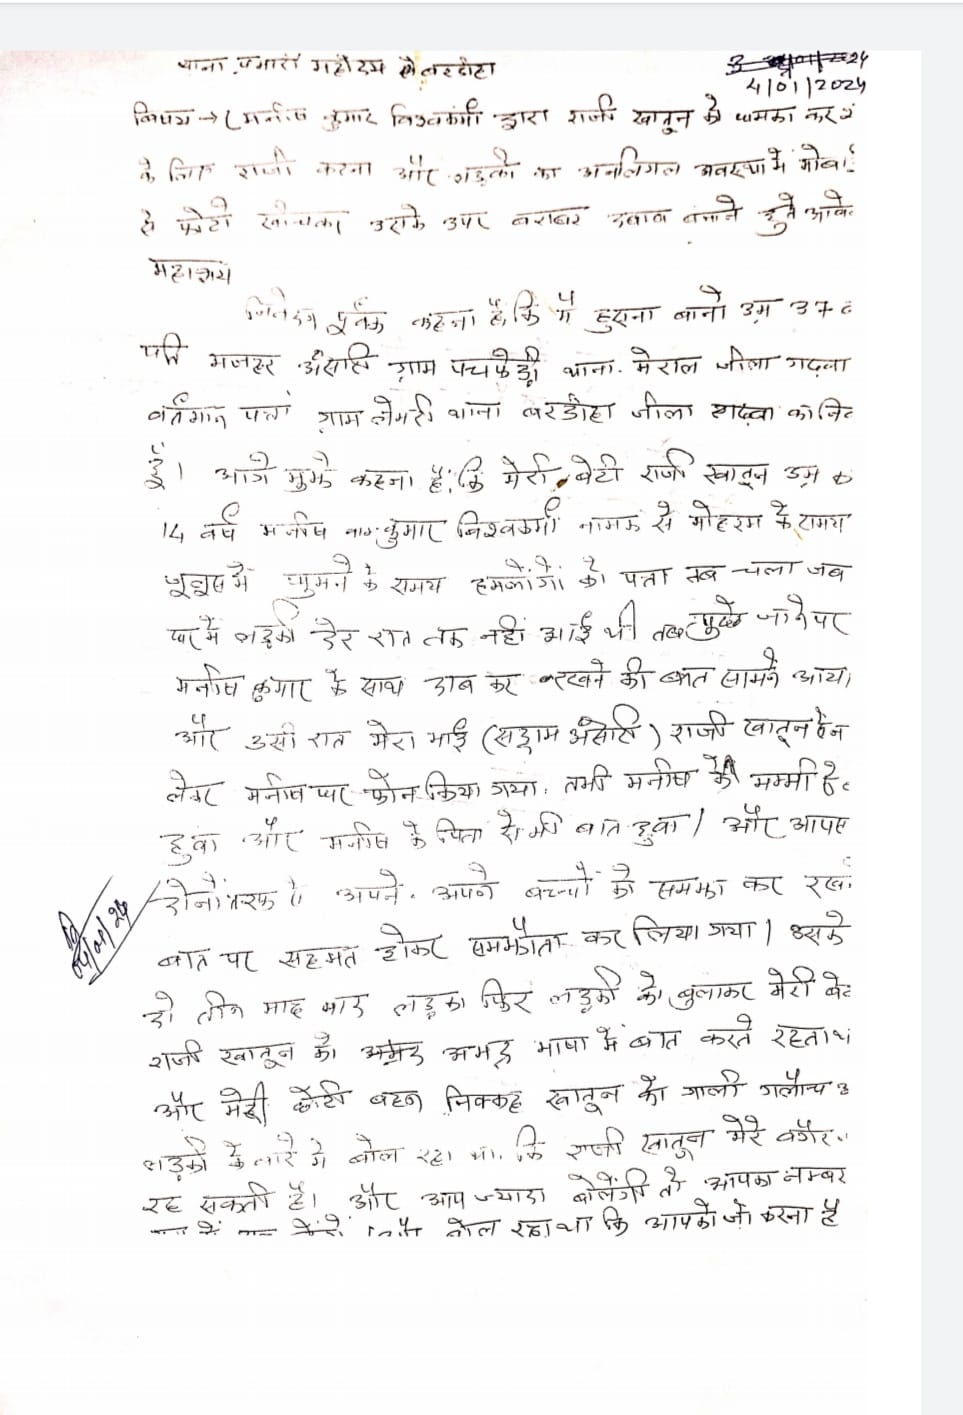 थाना प्रभारी महोदय बरडीहा
4/01/2024
विषय → मनीष कुमार विश्वकर्मा द्वारा राजी खातुन को धमका कर
के लिए राजी करना और लड़की का अवस्था में मोबा
से फोटो उसके उपर बराबर दबाव बनाने हेतु आवे
महाशय
निवेदन पूर्वक कहना है, कि मैं हुसना बानो उम्र 37 व
पति मजहर अंसारी ग्राम पचफेड़ी थाना मेराल जीला गढ़वा
वर्तमान पता ग्राम थाना बरडीहा जीला गढ़वा का नि
हुँ। आगे मुझे कहना है, कि मेरी बेटी राजी खातून उम्र
14 वर्ष मनीष कुमार विश्वकर्मा नामक से मोहरम के समय
में घुमने के समय हमलोगों को पता तब चला जब
घर में लड़की देर रात तक नहीं आई थी तब पुछे जाने पर
मनीष कुमार के साथ कर रखने की बात सामने आया
और उसी रात मेरा भाई (सद्दाम अंसारी) राजी खातून
लेकर मनीष पर फोन किया गया, तभी मनीष के मम्मी से
हुवा और मनीष के पिता से भी बात हुवा। और आपस
दोनों तरफ से अपने-अपने बच्चों को समझा कर रखे
बात पर सहमत होकर समझौता कर लिया गया। उसके
दो तीन माह बाद लड़का फिर लड़की को बुलाकर मेरी बे
राजी खातून को अभद्र भाषा में बात करते रहता था
और मेरी छोटी बहन खातून को गाली गलौच
लड़की के बारे में बोल रहा था, कि राजी खातून मेरे बगैर
रह सकती है। और आप ज्यादा बोलेंगी तो आपका नम्बर
बोल रहा था कि आपको जो करना है